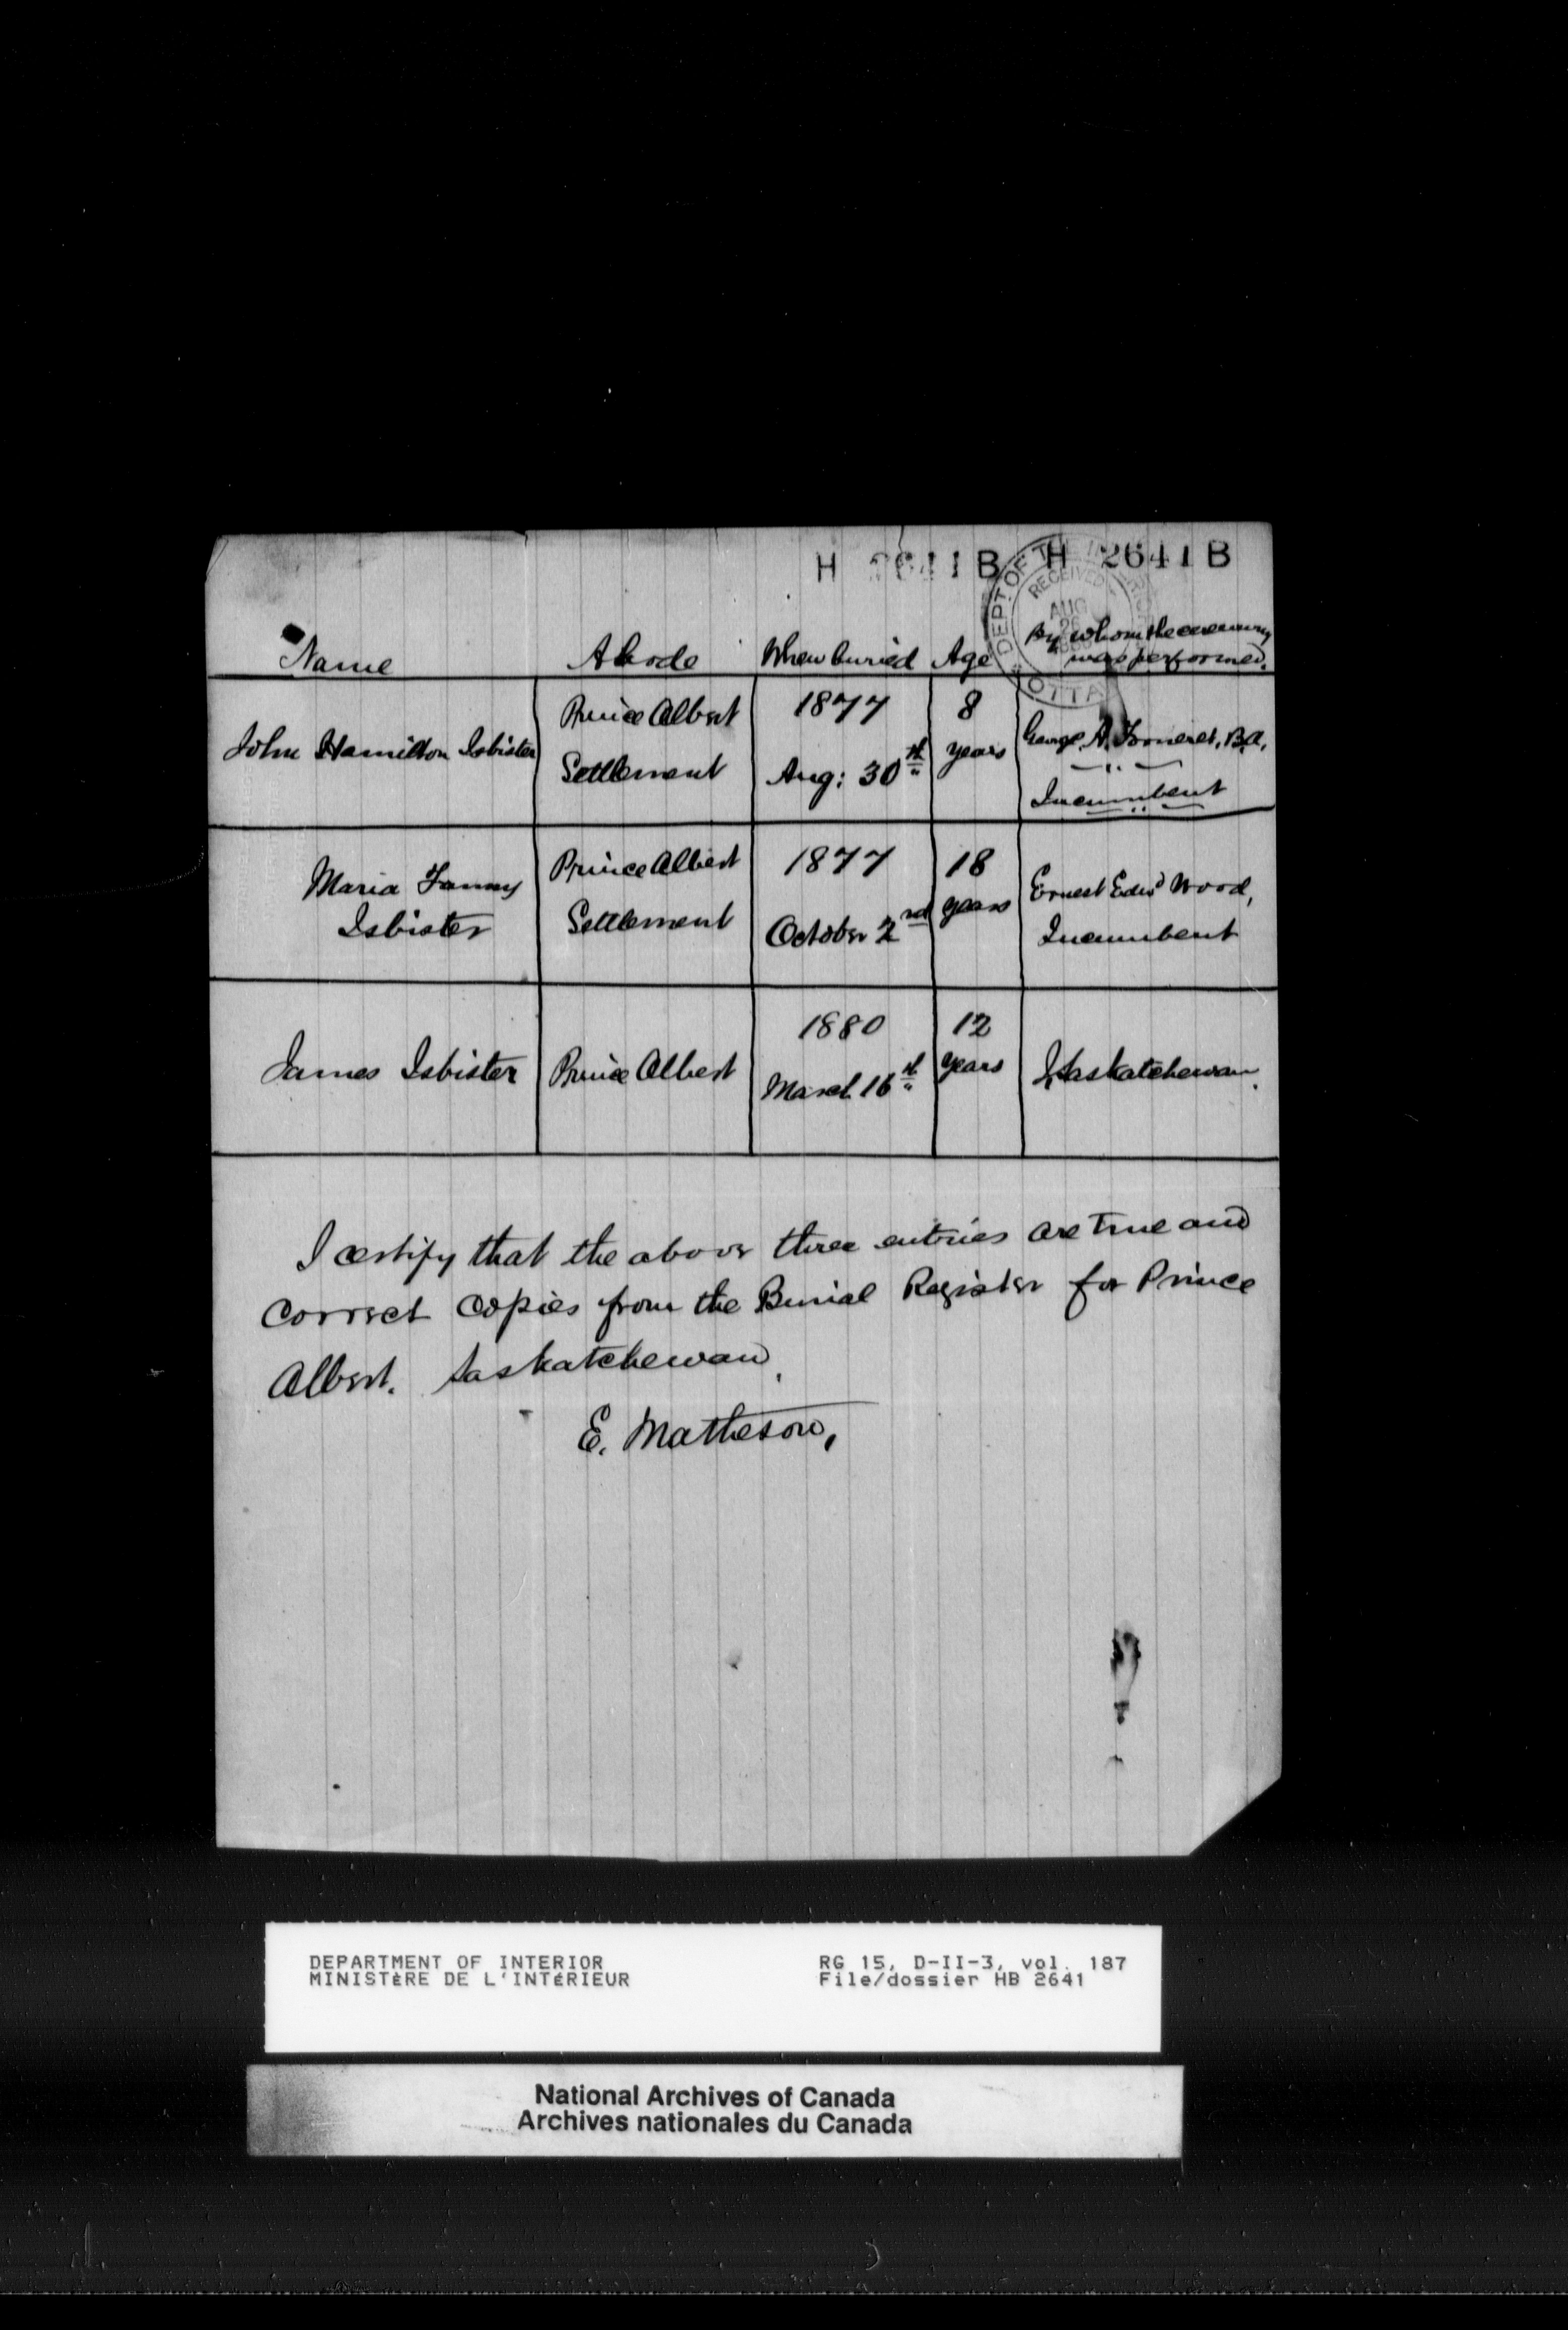 H 2641 B H 2641 B
DEPT. OF THE
RECEIVED
AUG
26
OTTA
Name Abode When buried Age By whom the ceremony
was performed.
John Hamilton Isbister Prince Albert Settlement 1877 Aug: 30th 8 years George A. Forneret, B.A. Incumbent
Maria Fanny Isbister Prince Albert Settlement 1877 October 2nd 18 years Ernest Edwd Wood, Incumbent
James Isbister Prince Albert 1880 March 16th 12 years J Saskatchewan.
I certify that the above three entries are true and
correct copies from the Burial Register for Prince
Albert. Saskatchewan.
E. Matheson,
DEPARTMENT OF INTERIOR
MINISTÈRE DE L'INTÉRIEUR
RG 15, D-II-3, vol. 187
File/dossier HB 2641
National Archives of Canada
Archives nationales du Canada